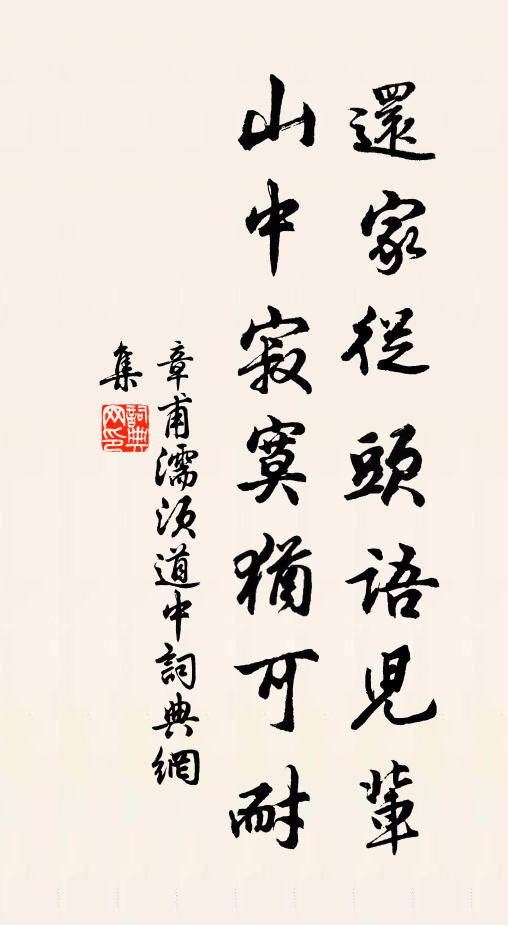 還家從頭語兒輩
山中寂寞猶可耐
章甫濡須道中詞典網
集
詞典网印